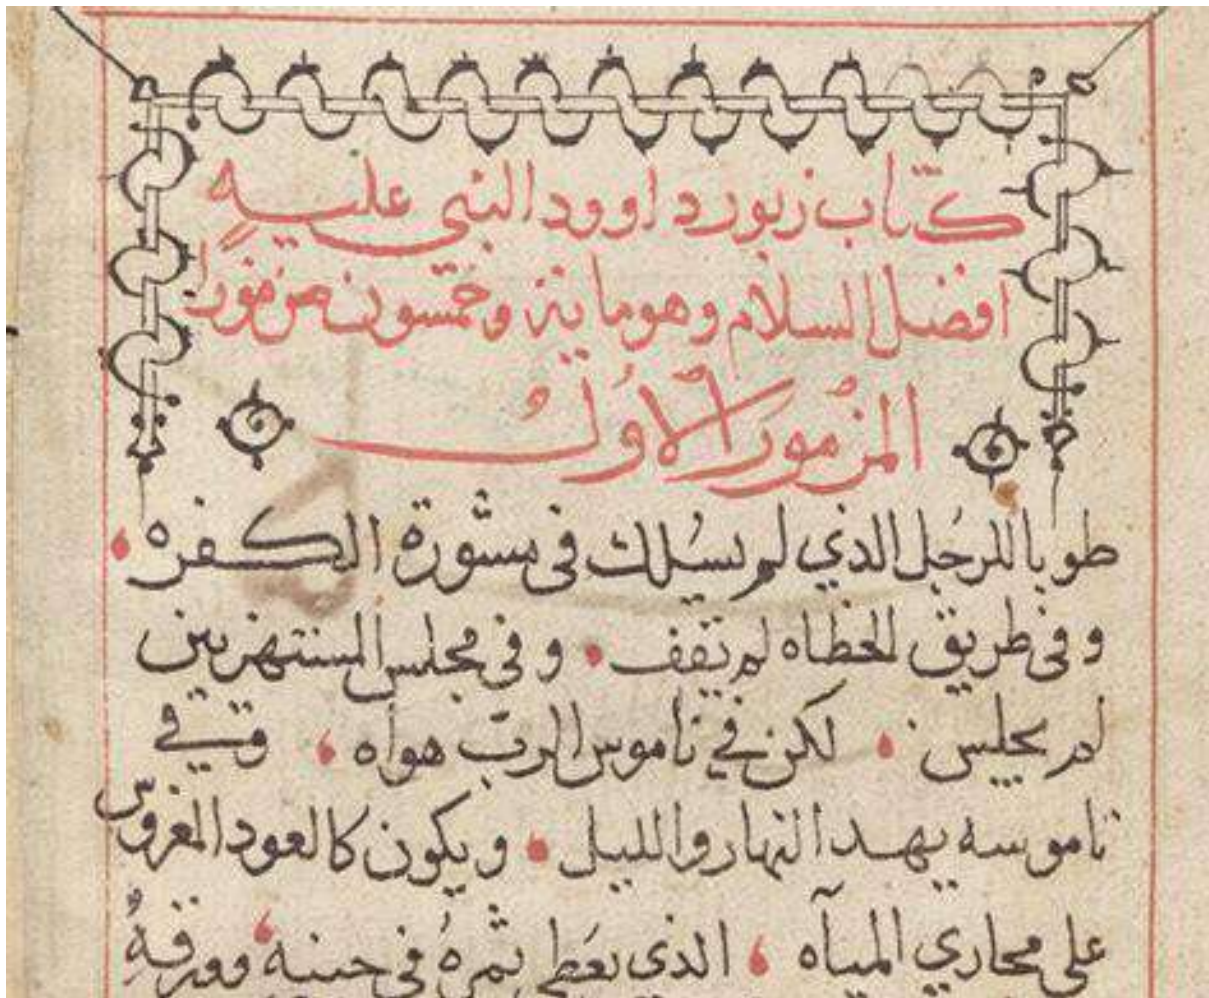 كتاب زبور داوود النبي عليه
افضل السلام وهو ماية وخمسون مزمورا
المزمور الاول
طوبا للرجل الذي لم يسلك في مشورة الكفره
وفي طريق الخطاه لم يقف • وفي مجلس المستهزيين
لم يجلس • لكن في ناموس الرب هواه • وفي
ناموسه يهدا النهار والليل • ويكون كالعود المغروس
على مجاري المياه • الذي يعطي ثمره في حينه • وورقه